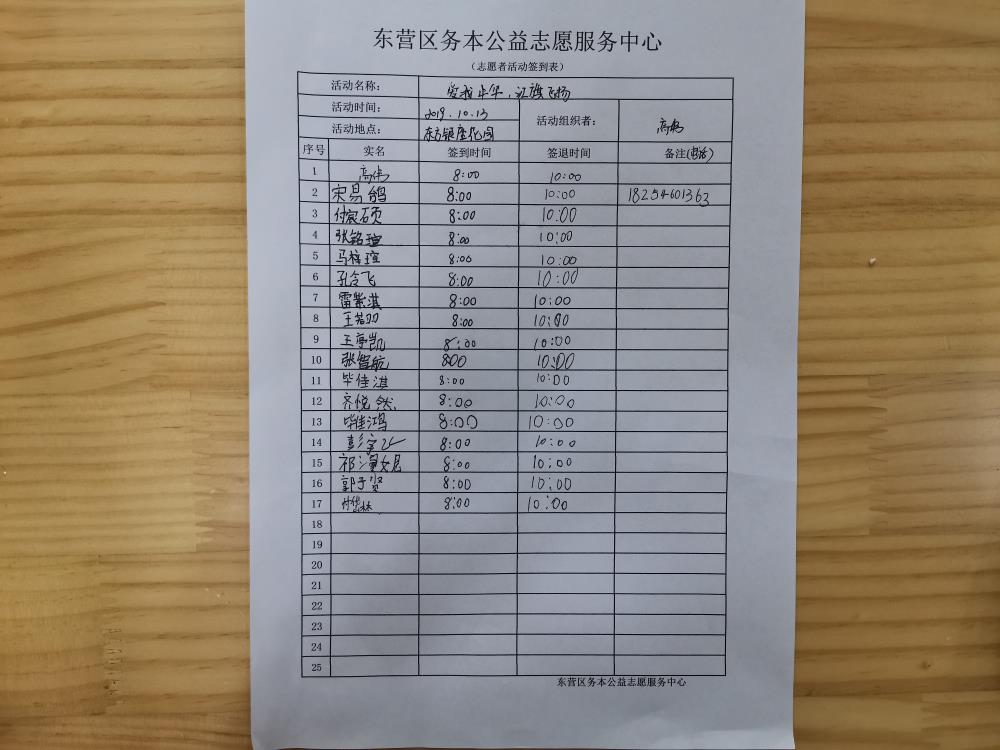 东营区务本公益志愿服务中心
（志愿者活动签到表）
活动名称： 爱我中华，红旗飞扬
活动时间： 2019.10.13
活动组织者： 高伟
活动地点： 东方银座花园
序号 实名 签到时间 签退时间 备注(电话)
1 高伟 8:00 10:00
2 宋易鸽 8:00 10:00 18254601363
3 付宸硕 8:00 10:00
4 张铭瑄 8:00 10:00
5 马梓瑄 8:00 10:00
6 孔令飞 8:00 10:00
7 雷紫淇 8:00 10:00
8 王若羽 8:00 10:00
9 王亭凯 8:00 10:00
10 张智航 800 10:00
11 毕佳淇 8:00 10:00
12 齐悦然 8:00 10:00
13 毕佳鸿 8:00 10:00
14 彭宇 8:00 10:00
15 祁 8:00 10:00
16 郭子贤 8:00 10:00
17 8:00 10:00
18
19
20
21
22
23
24
25
东营区务本公益志愿服务中心